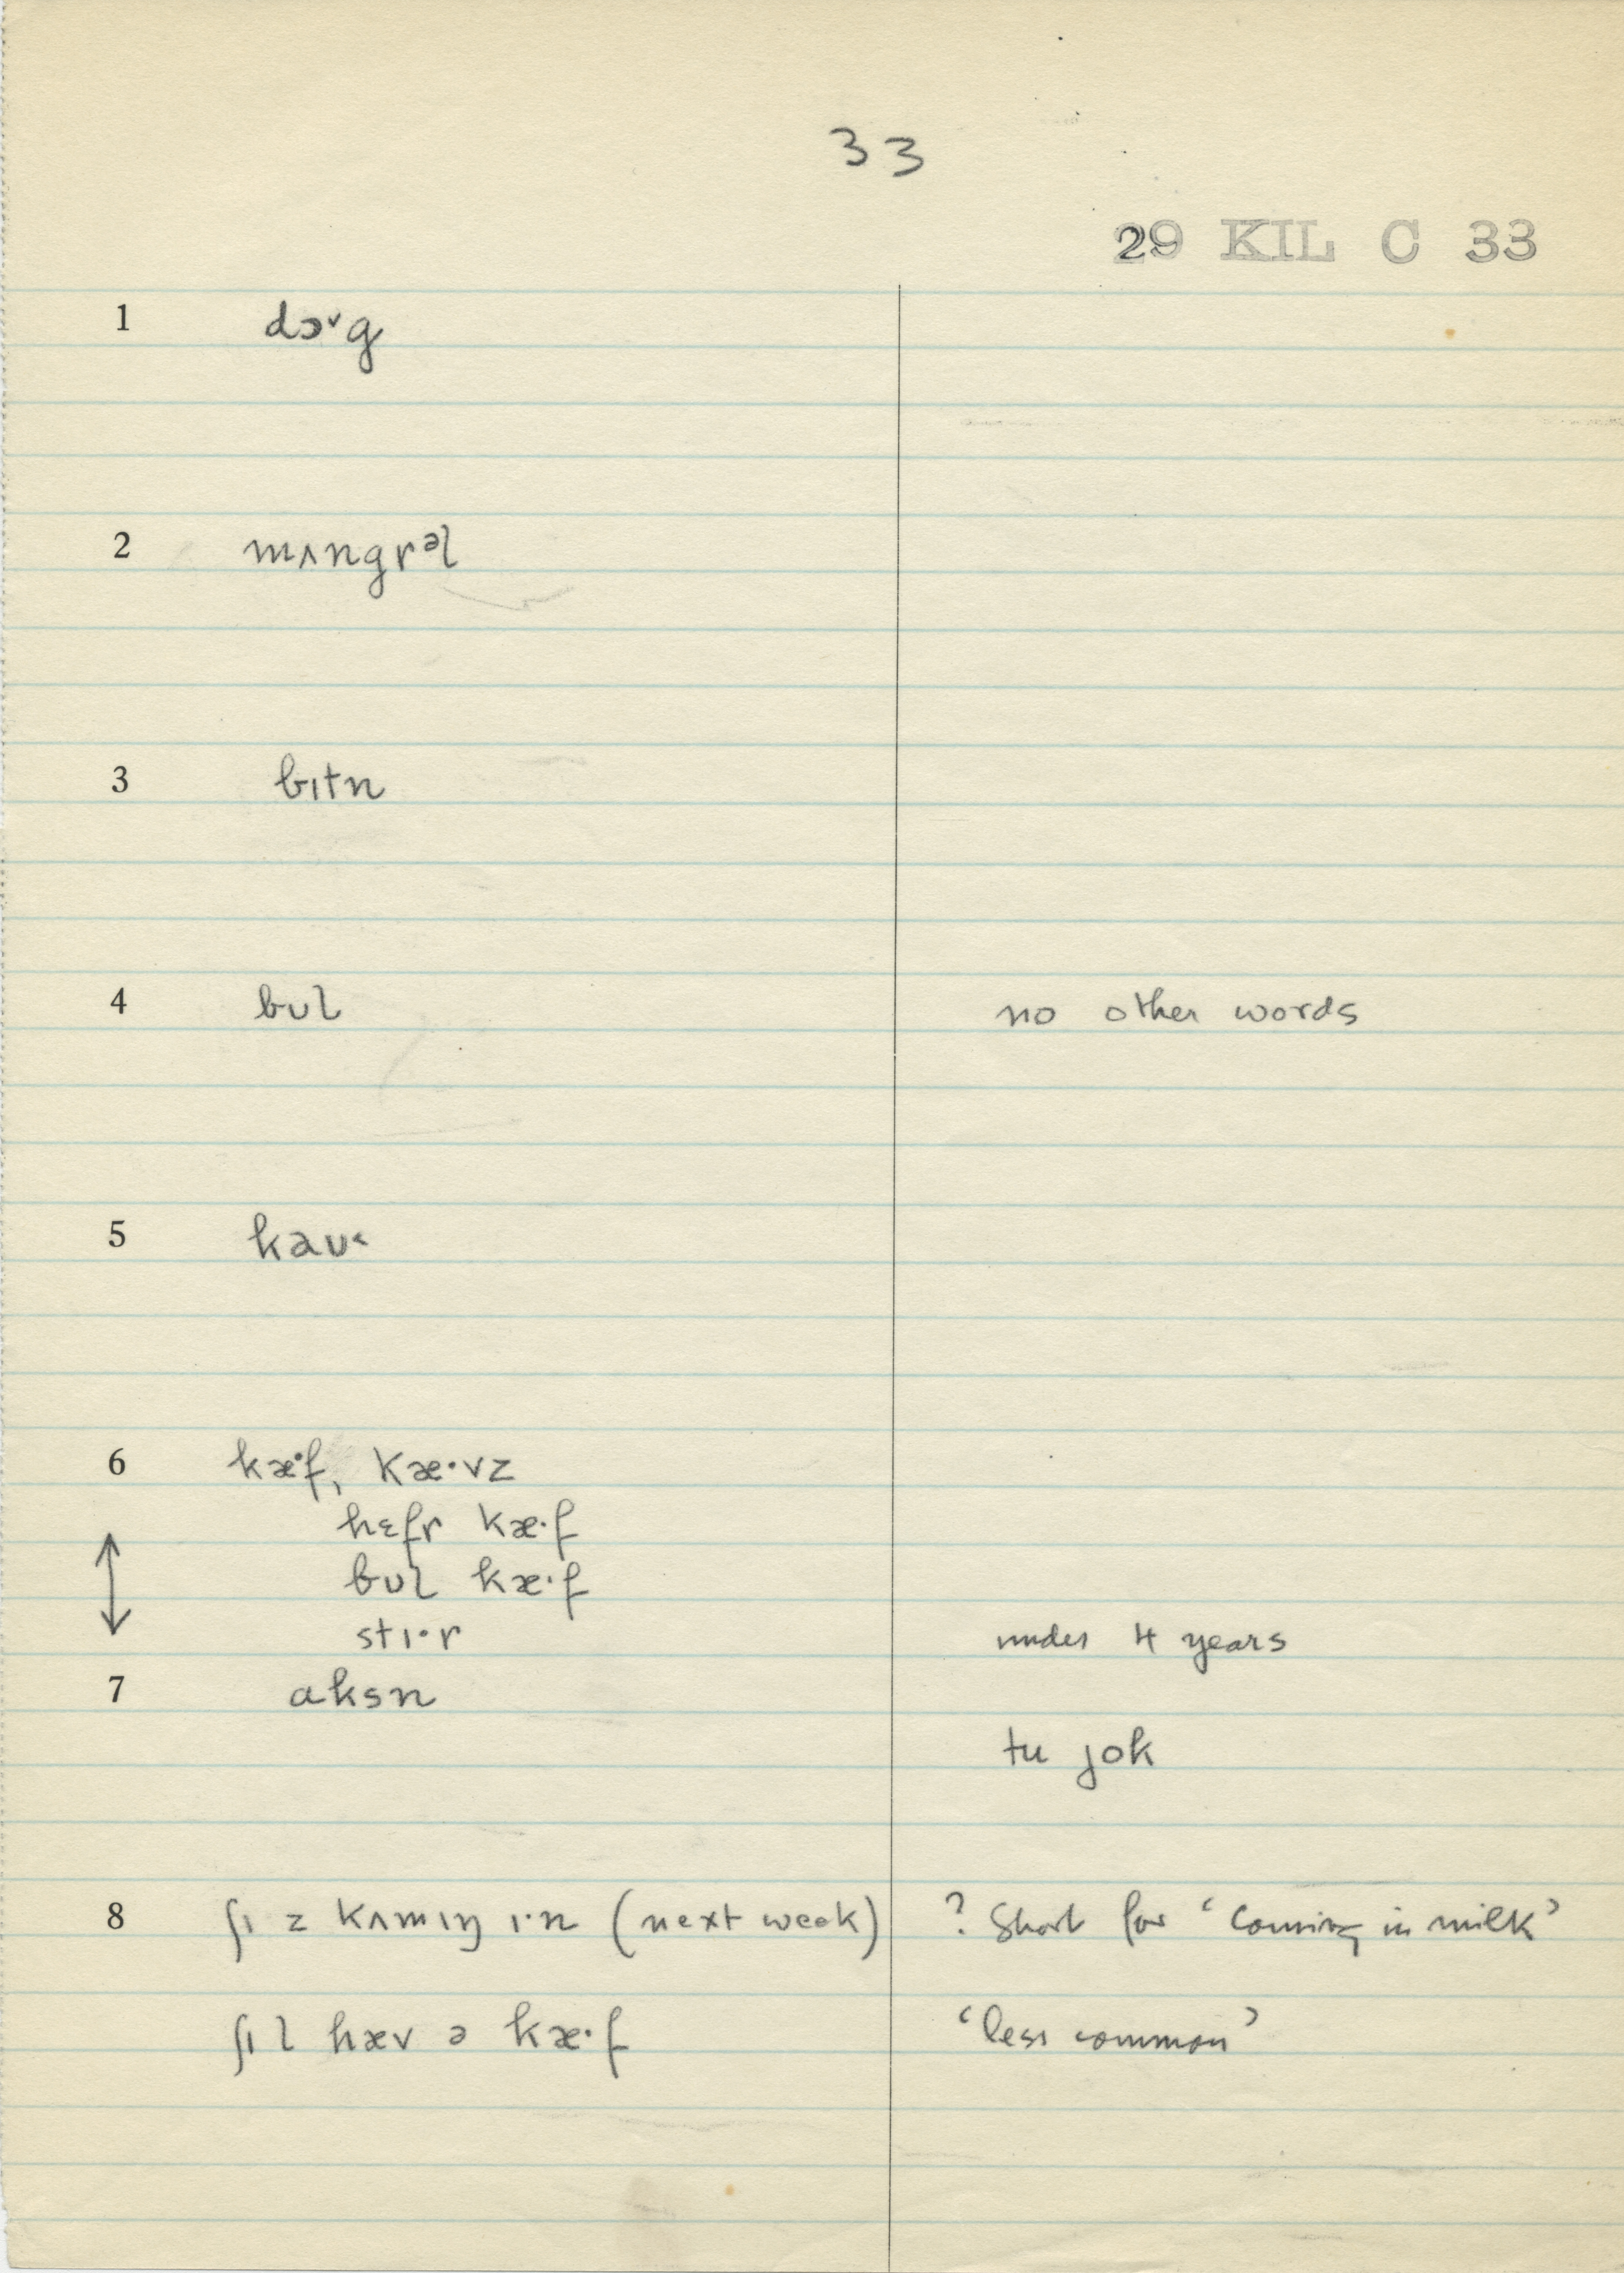 33
29 KIL C 33
1 dɔ˅g
2 mʌngrᵊl
3 bɪtn
4 bʊl no other words
5 kaʊ˂
6 kæ·f, kæ·vz
hɛfr kæ·f
bʊl kæ·f
stɪ·r under 4 years
7 aksn
tu jok
8 ʃɪ z kʌmɪŋ ɪ·n (next week) ? Short for ‘coming in milk’
ʃɪ l hæv ə kæ·f ‘less common’